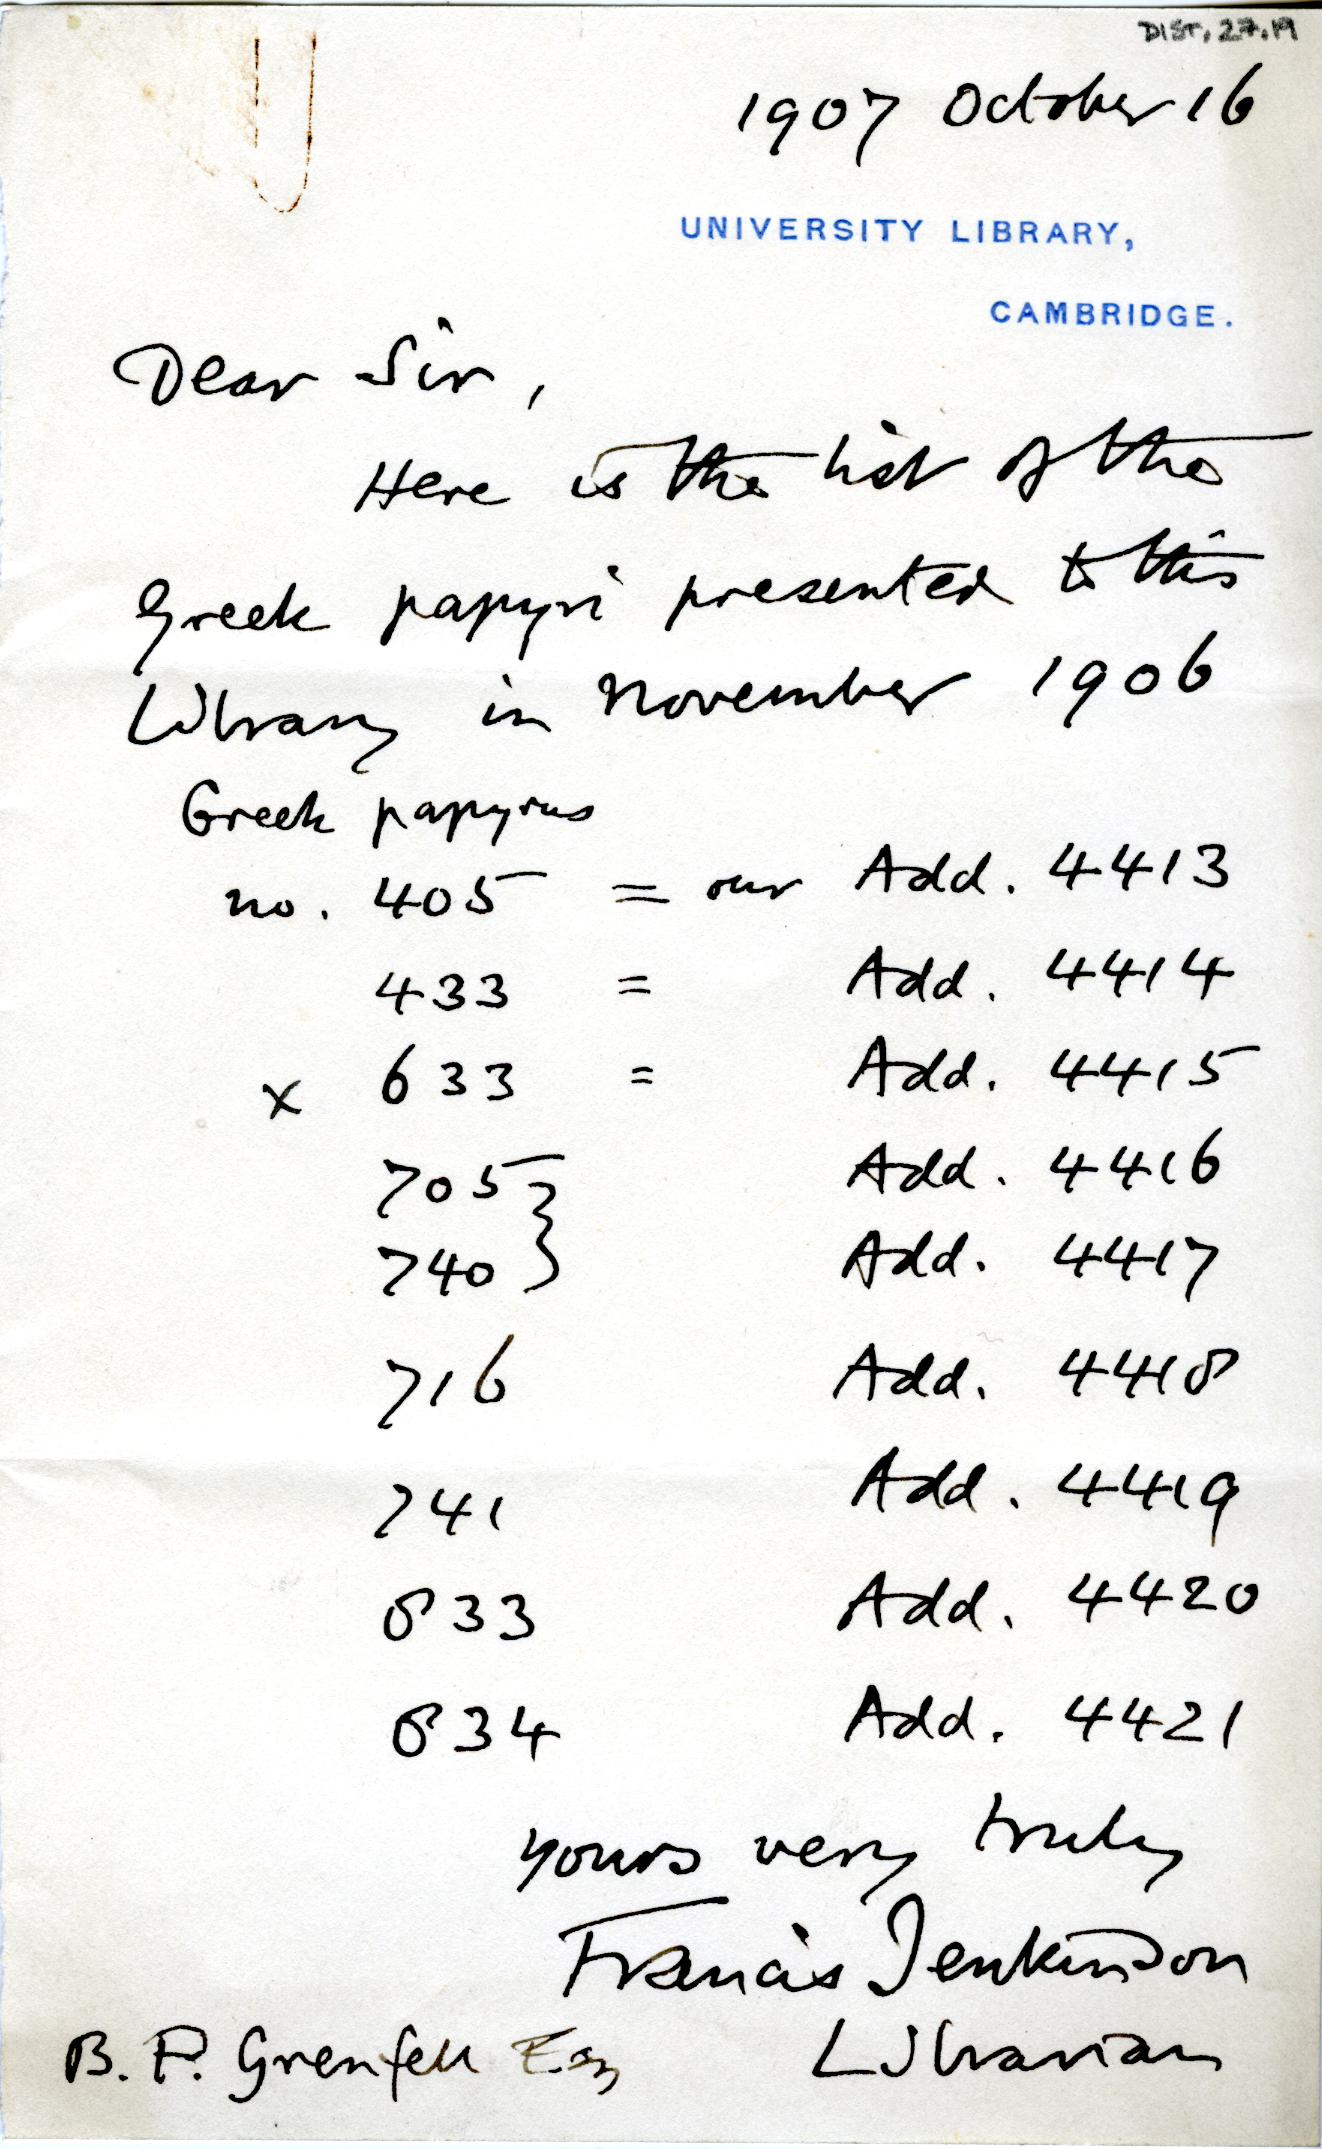 DIST. 27.19
1907 October 16
UNIVERSITY LIBRARY,
CAMBRIDGE.
Dear Sir,
Here is the list of the
Greek papyri presented to this
Library in November 1906
Greek papyrus
no. 405 = our Add. 4413
433 = Add. 4414
x 633 = Add. 4415
705 } Add. 4416
740 } Add. 4417
716 Add. 4418
741 Add. 4419
833 Add. 4420
834 Add. 4421
Yours very truly
Francis Jenkinson
B. P. Grenfell Esq Librarian